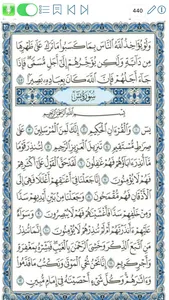 440
وَلَوْ يُؤَاخِذُ ٱللَّهُ ٱلنَّاسَ بِمَا كَسَبُوا۟ مَا تَرَكَ عَلَىٰ ظَهْرِهَا
مِن دَآبَّةٍ وَلَٰكِن يُؤَخِّرُهُمْ إِلَىٰٓ أَجَلٍ مُّسَمًّى فَإِذَا
جَآءَ أَجَلُهُمْ فَإِنَّ ٱللَّهَ كَانَ بِعِبَادِهِۦ بَصِيرًۢا ٤٥
سُورَةُ يسٓ
بِسْمِ ٱللَّهِ ٱلرَّحْمَٰنِ ٱلرَّحِيمِ
يسٓ ١ وَٱلْقُرْءَانِ ٱلْحَكِيمِ ٢ إِنَّكَ لَمِنَ ٱلْمُرْسَلِينَ ٣ عَلَىٰ
صِرَٰطٍ مُّسْتَقِيمٍ ٤ تَنزِيلَ ٱلْعَزِيزِ ٱلرَّحِيمِ ٥ لِتُنذِرَ قَوْمًا
مَّآ أُنذِرَ ءَابَآؤُهُمْ فَهُمْ غَٰفِلُونَ ٦ لَقَدْ حَقَّ ٱلْقَوْلُ عَلَىٰٓ أَكْثَرِهِمْ
فَهُمْ لَا يُؤْمِنُونَ ٧ إِنَّا جَعَلْنَا فِىٓ أَعْنَٰقِهِمْ أَغْلَٰلًا فَهِىَ إِلَى
ٱلْأَذْقَانِ فَهُم مُّقْمَحُونَ ٨ وَجَعَلْنَا مِنۢ بَيْنِ أَيْدِيهِمْ سَدًّا
وَمِنْ خَلْفِهِمْ سَدًّا فَأَغْشَيْنَٰهُمْ فَهُمْ لَا يُبْصِرُونَ ٩ وَسَوَآءٌ
عَلَيْهِمْ ءَأَنذَرْتَهُمْ أَمْ لَمْ تُنذِرْهُمْ لَا يُؤْمِنُونَ ١٠ إِنَّمَا تُنذِرُ
مَنِ ٱتَّبَعَ ٱلذِّكْرَ وَخَشِىَ ٱلرَّحْمَٰنَ بِٱلْغَيْبِ فَبَشِّرْهُ بِمَغْفِرَةٍ
وَأَجْرٍ كَرِيمٍ ١١ إِنَّا نَحْنُ نُحْىِ ٱلْمَوْتَىٰ وَنَكْتُبُ مَا قَدَّمُوا۟
وَءَاثَٰرَهُمْ وَكُلَّ شَىْءٍ أَحْصَيْنَٰهُ فِىٓ إِمَامٍ مُّبِينٍ ١٢